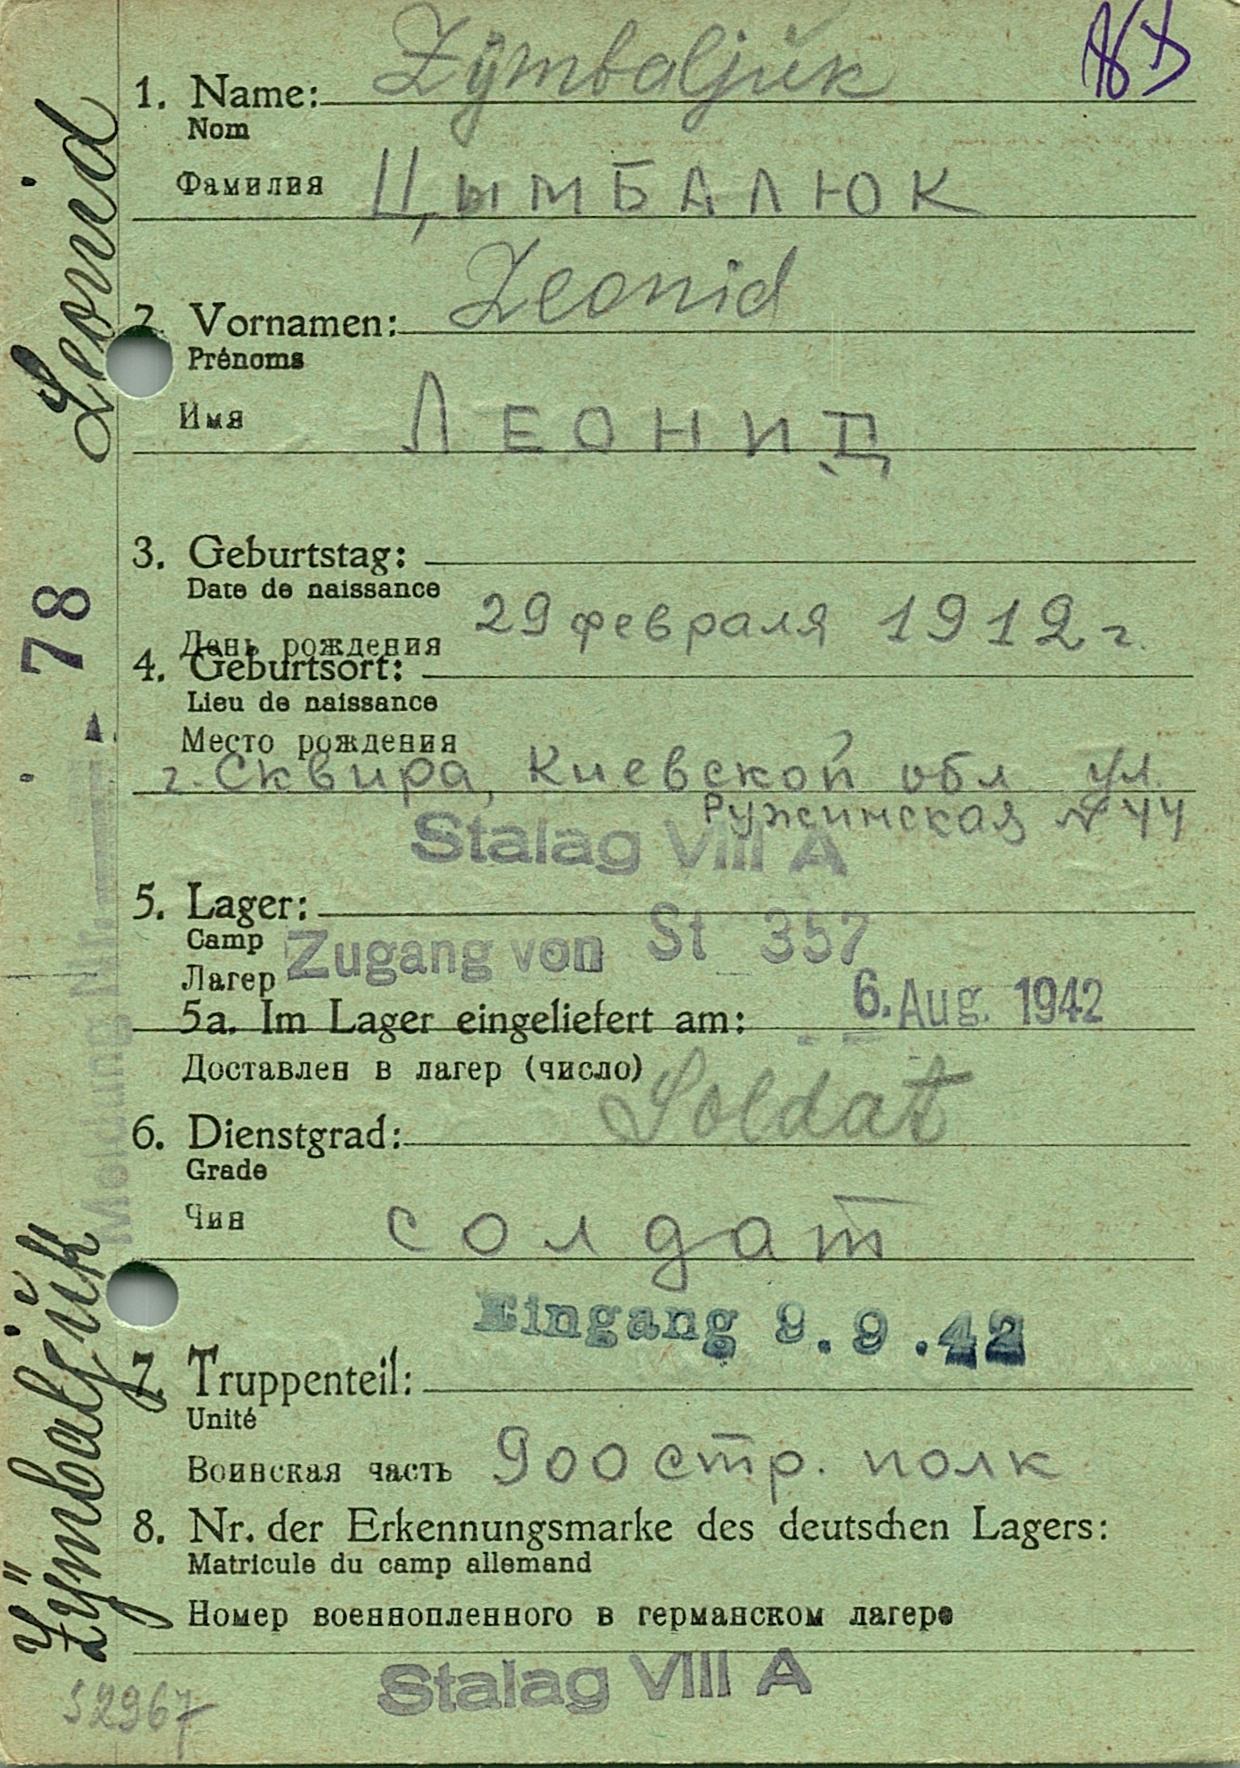 1. Name: Zÿmbaljŭk
Nom
Фамилия ЦЫМБАЛЮК
2. Vornamen: Leonid
Prénoms
Имя ЛЕОНИД
3. Geburtstag:
Date de naissance
День рождения 29 февраля 1912 г.
4. Geburtsort:
Lieu de naissance
Место рождения
г. Сквира, Киевской обл ул.
Ружинская № 44
Stalag VIII A
5. Lager:
Camp Zugang von St 357
Лагер
5a. Im Lager eingeliefert am: 6. Aug. 1942
Доставлен в лагер (число)
6. Dienstgrad: Soldat
Grade
Чин солдат
Eingang 9.9.42
7. Truppenteil:
Unité
Воинская часть 900 стр. полк
8. Nr. der Erkennungsmarke des deutschen Lagers:
Matricule du camp allemand
Номер военнопленного в германском лагере
Stalag VIII A
52967
Zÿmbaljŭk Leonid
Meldung Nr. 78